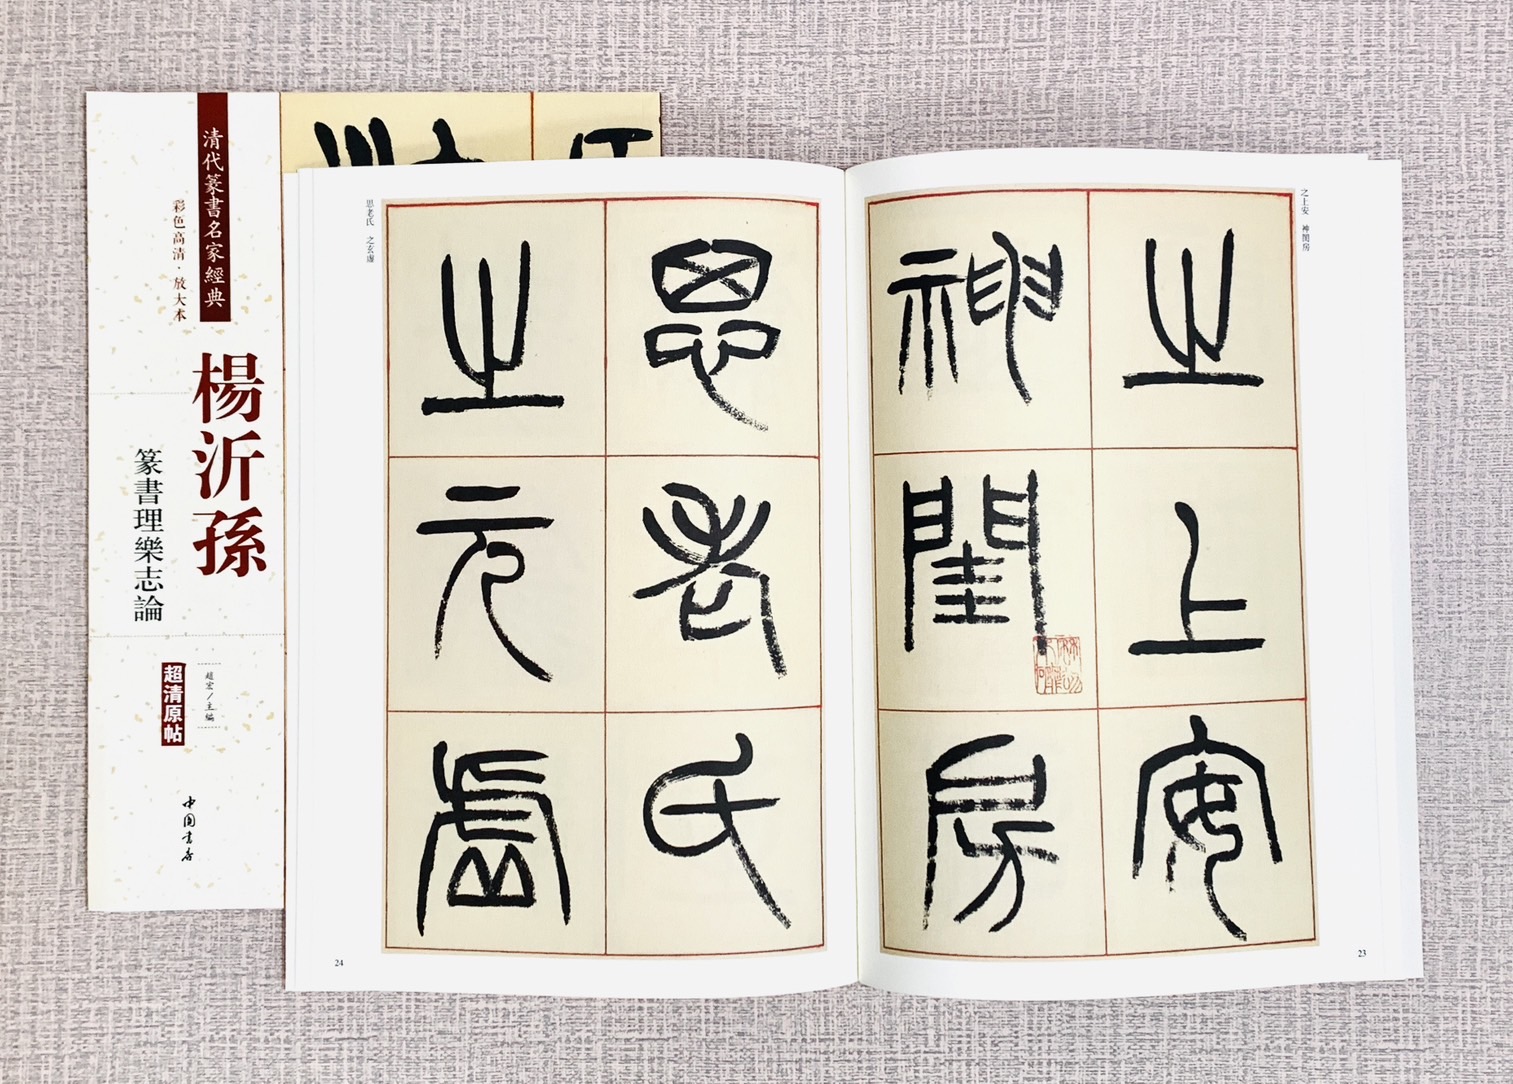 清代篆書名家經典
彩色高清·放大本
楊沂孫
篆書理樂志論
趙宏/主編
超清原帖
中國書店
之上安 神閨房
之上安
神閨房
23
思老氏 之玄虛
思老氏
之元虛
24